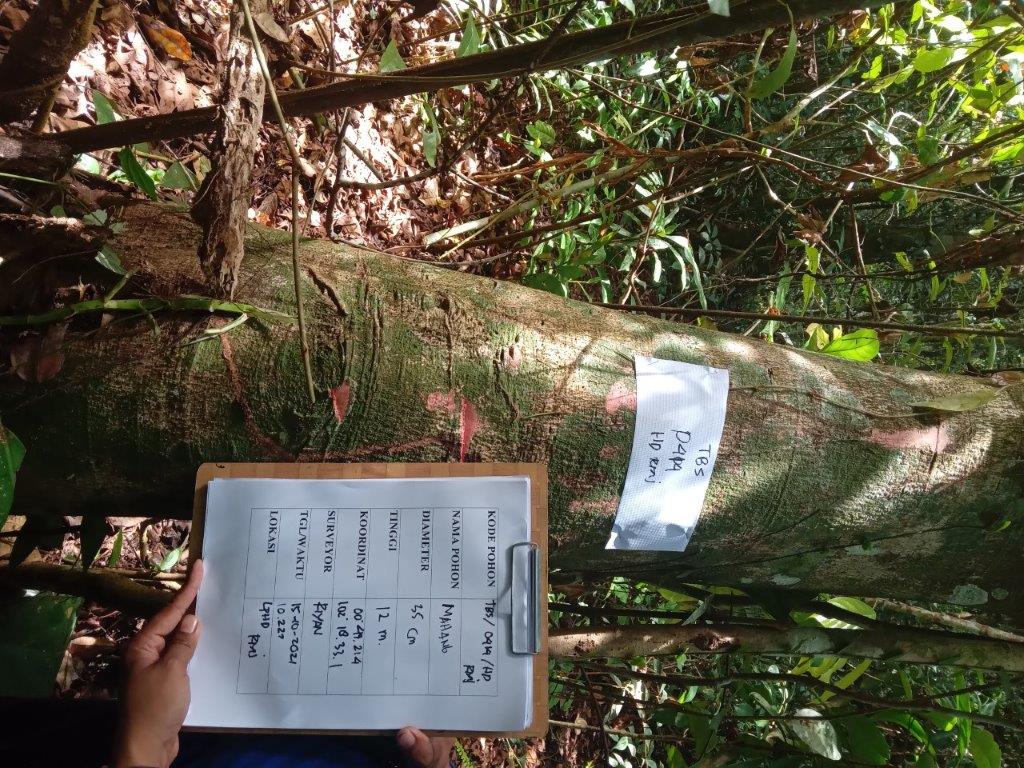 TBS
0414
HD RMJ
KODE POHON TBS/ 0414/HD
RMJ
NAMA POHON MAHANG
DIAMETER 35 cm
TINGGI 12 m.
KOORDINAT 00°49.214
102°18.33.1
SURVEYOR RIYAN
TGL/WAKTU 15-10-2021
10.227
LOKASI LPHD
RMJ